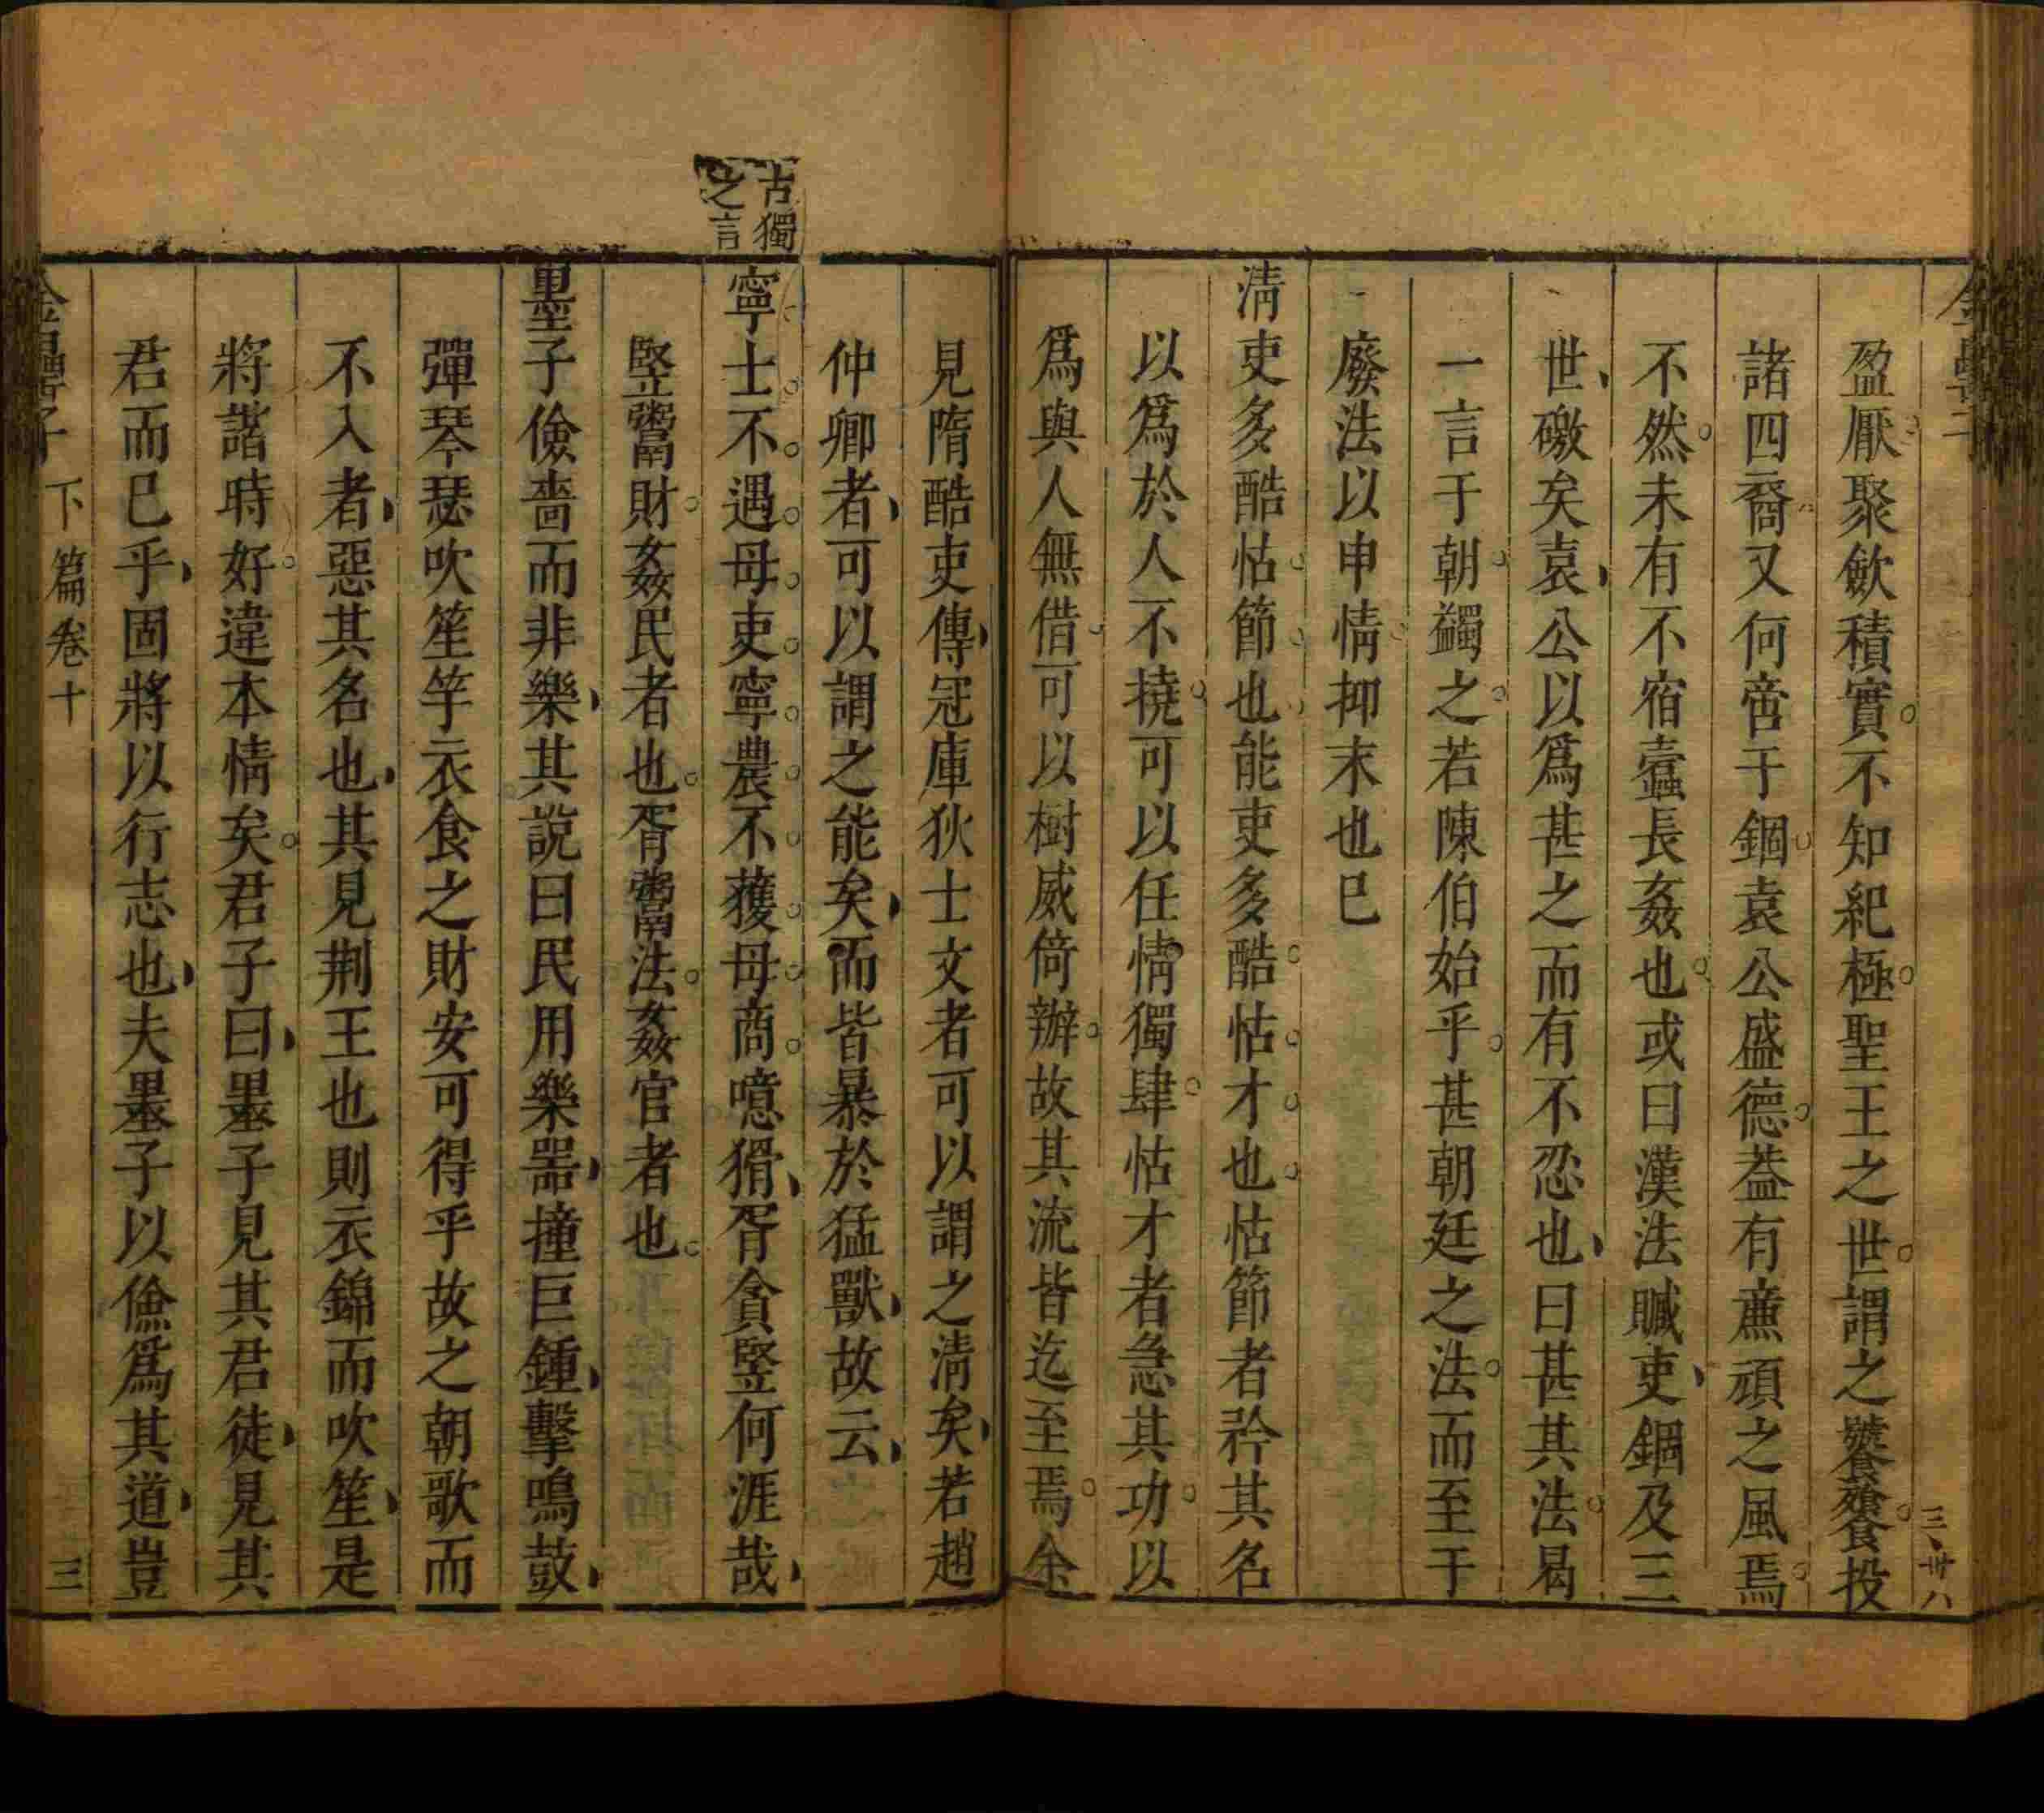 盈厭聚歛積實不知紀極聖王之世謂之饕餮投
諸四裔又何啻于錮袁公盛德葢有亷頑之風焉
不然未有不宿蠧長姦也或曰漢法贓吏錮及三
世礉矣袁公以爲甚之而有不忍也曰甚其法曷
一言于朝蠲之若陳伯始乎甚朝廷之法而至于
廢法以申情抑末也已
淸吏多酷怙節也能吏多酷怙才也怙節者矜其名
以爲於人不撓可以任情獨肆怙才者急其功以
爲與人無借可以樹威倚辦故其流皆迄至焉余
三、卅八
見隋酷吏傳冦庫狄士文者可以謂之淸矣若趙
仲卿者可以謂之能矣而皆暴於猛獸故云
古獨
之言
寧士不遇母吏寧農不獲母商噫猾胥貪竪何涯哉
竪鬻財姦民者也胥鬻法姦官者也
墨子儉嗇而非樂其說曰民用樂噐撞巨鍾擊鳴鼓
彈琴瑟吹笙竽衣食之財安可得乎故之朝歌而
不入者惡其名也其見荆王也則衣錦而吹笙是
將諧時好違本情矣君子曰墨子見其君徒見其
君而已乎固將以行志也夫墨子以儉爲其道豈
金罍子 下篇卷十 三